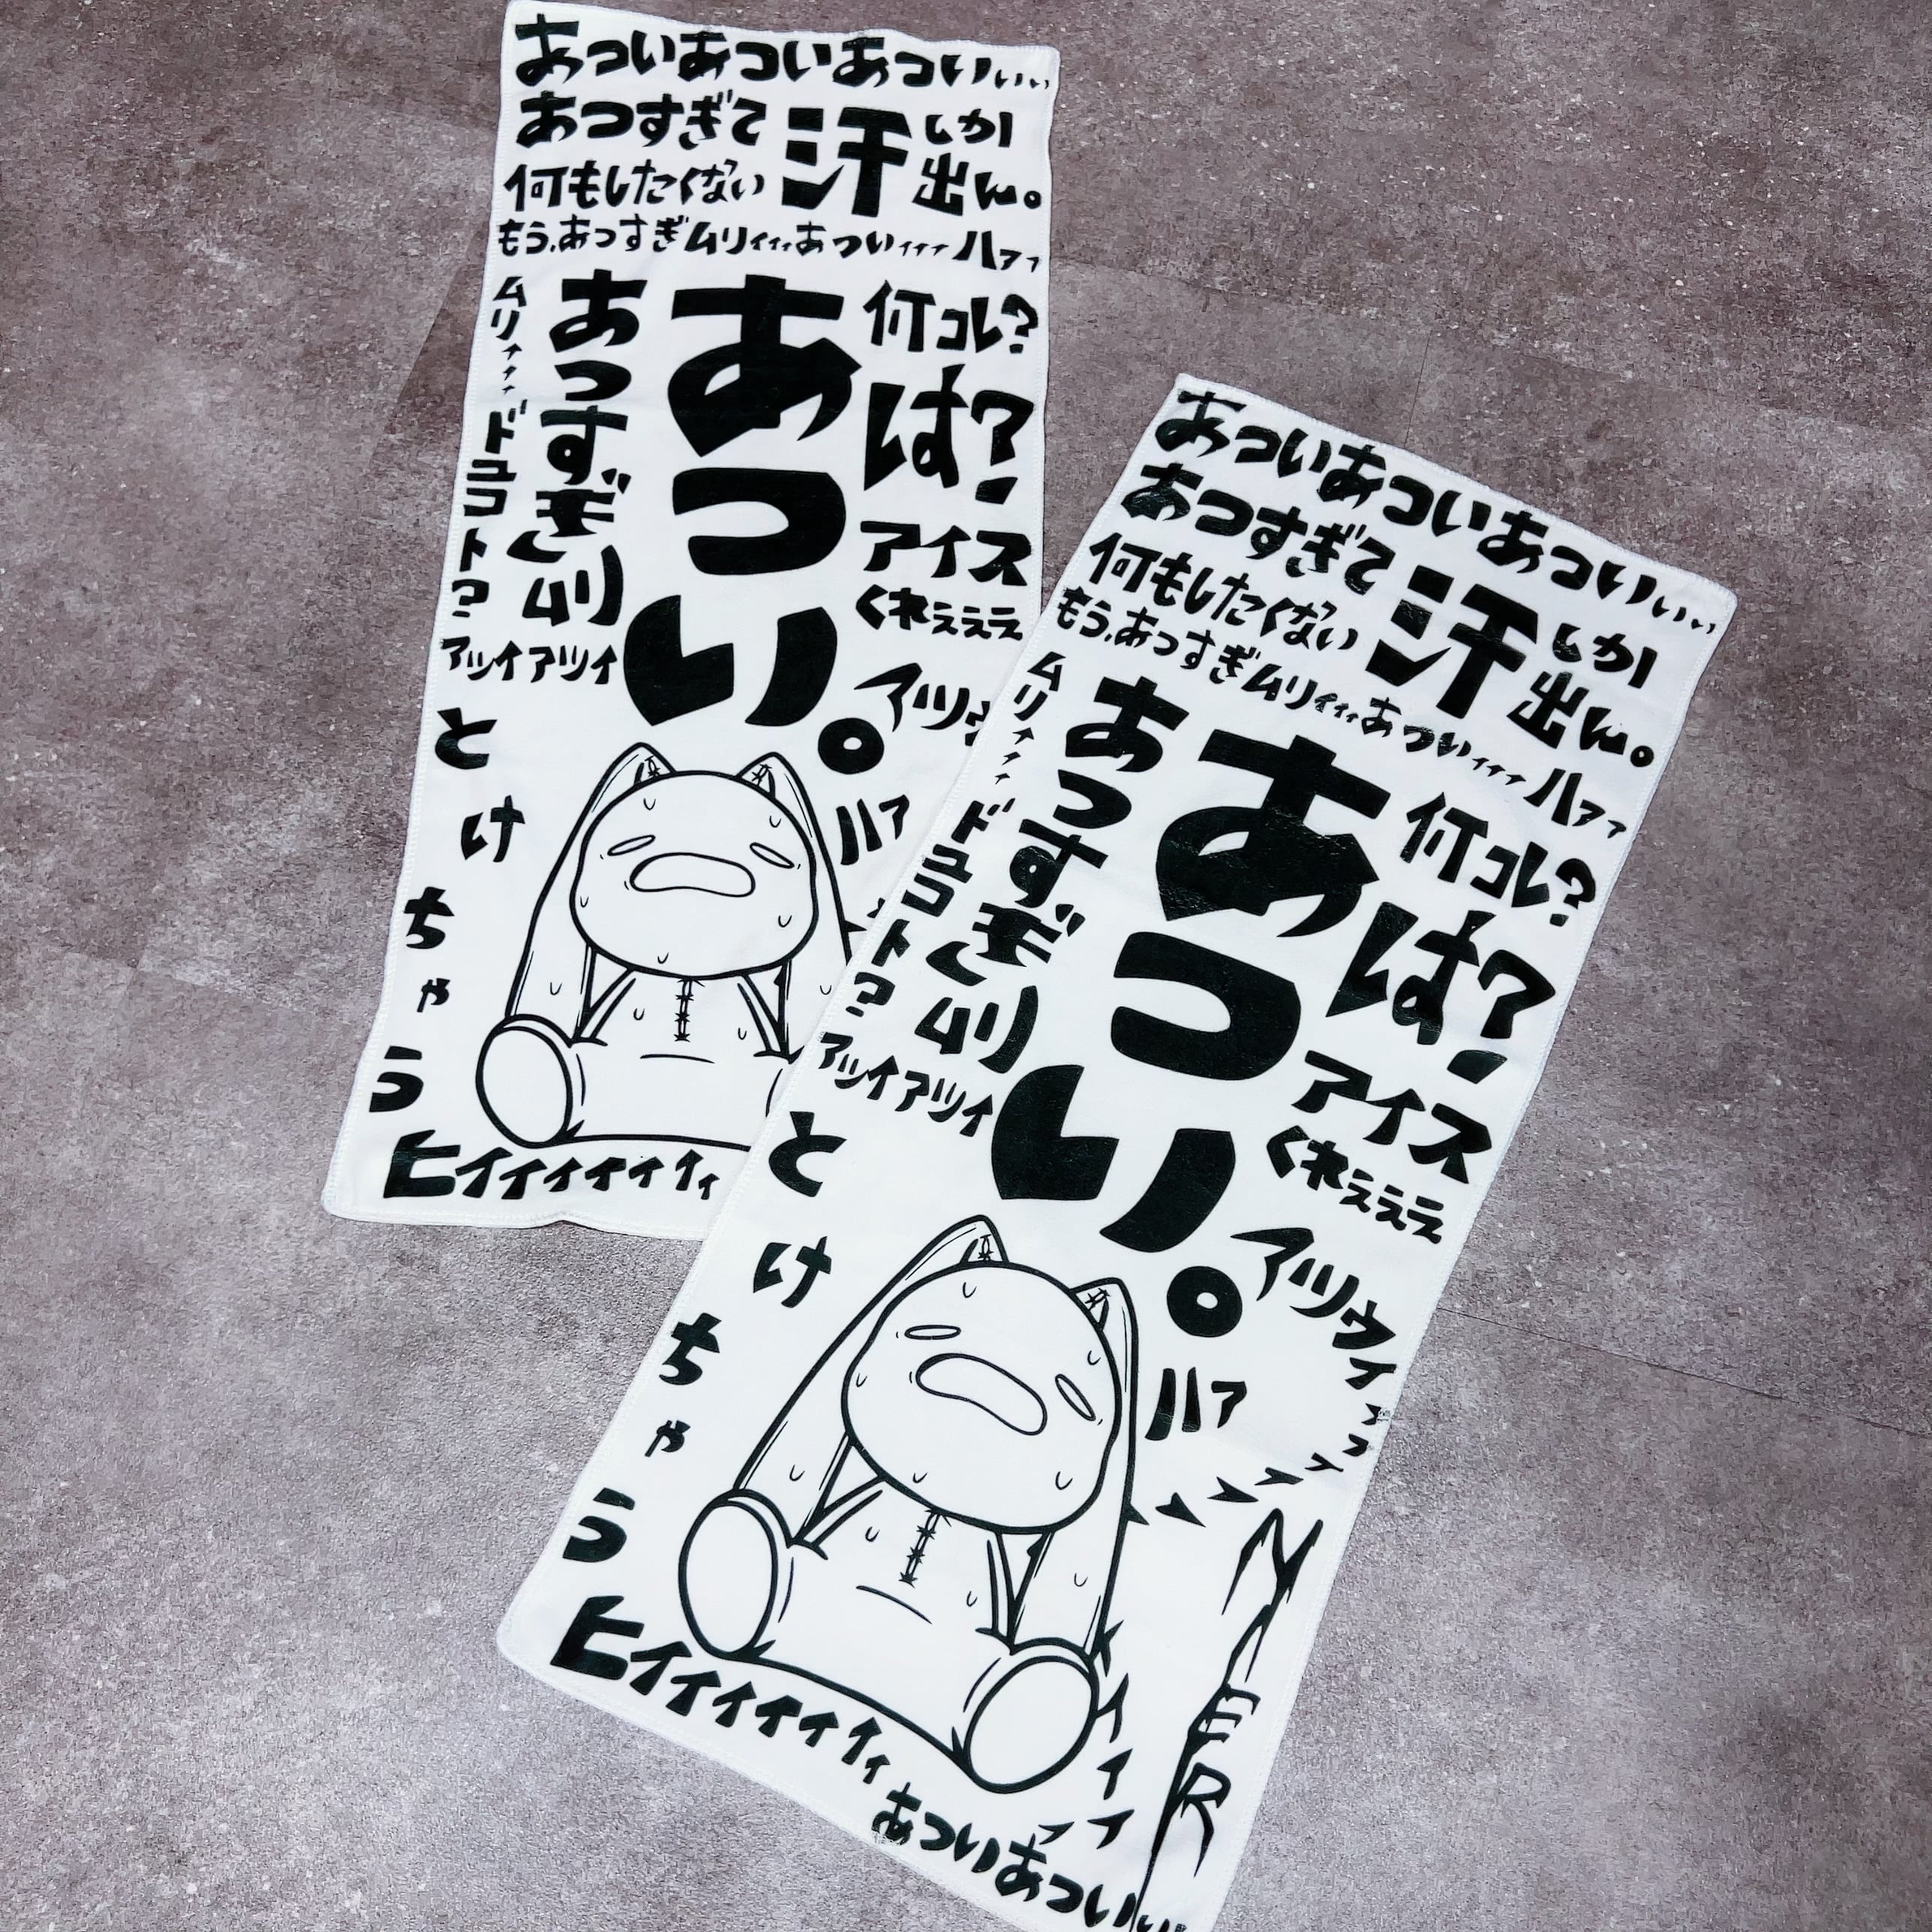 あついあついあついぃぃぃ
あつすぎて
汗しか
出ん。
何もしたくない
もう、あっすぎムリィィィあついィィィハァァ
ムリィィィ
ドユコト?
あっすぎムリ
あつい。
何コレ?
は?
アイス
くれぇぇぇ
アツイアツイ
アツゥ
ハァ
とけちゃう
ヒイィィィィィィ
あついあついあついぃぃぃ
あつすぎて
汗しか
出ん。
何もしたくない
もう、あっすぎムリィィィあついィィィハァァ
ムリィィィ
ドユコト?
あっすぎムリ
あつい。
何コレ?
は?
アイス
くれぇぇぇ
アツイアツイ
アツゥイ
ハァ
とけちゃう
ヒイィィィィィィ
NIER
あついあつい